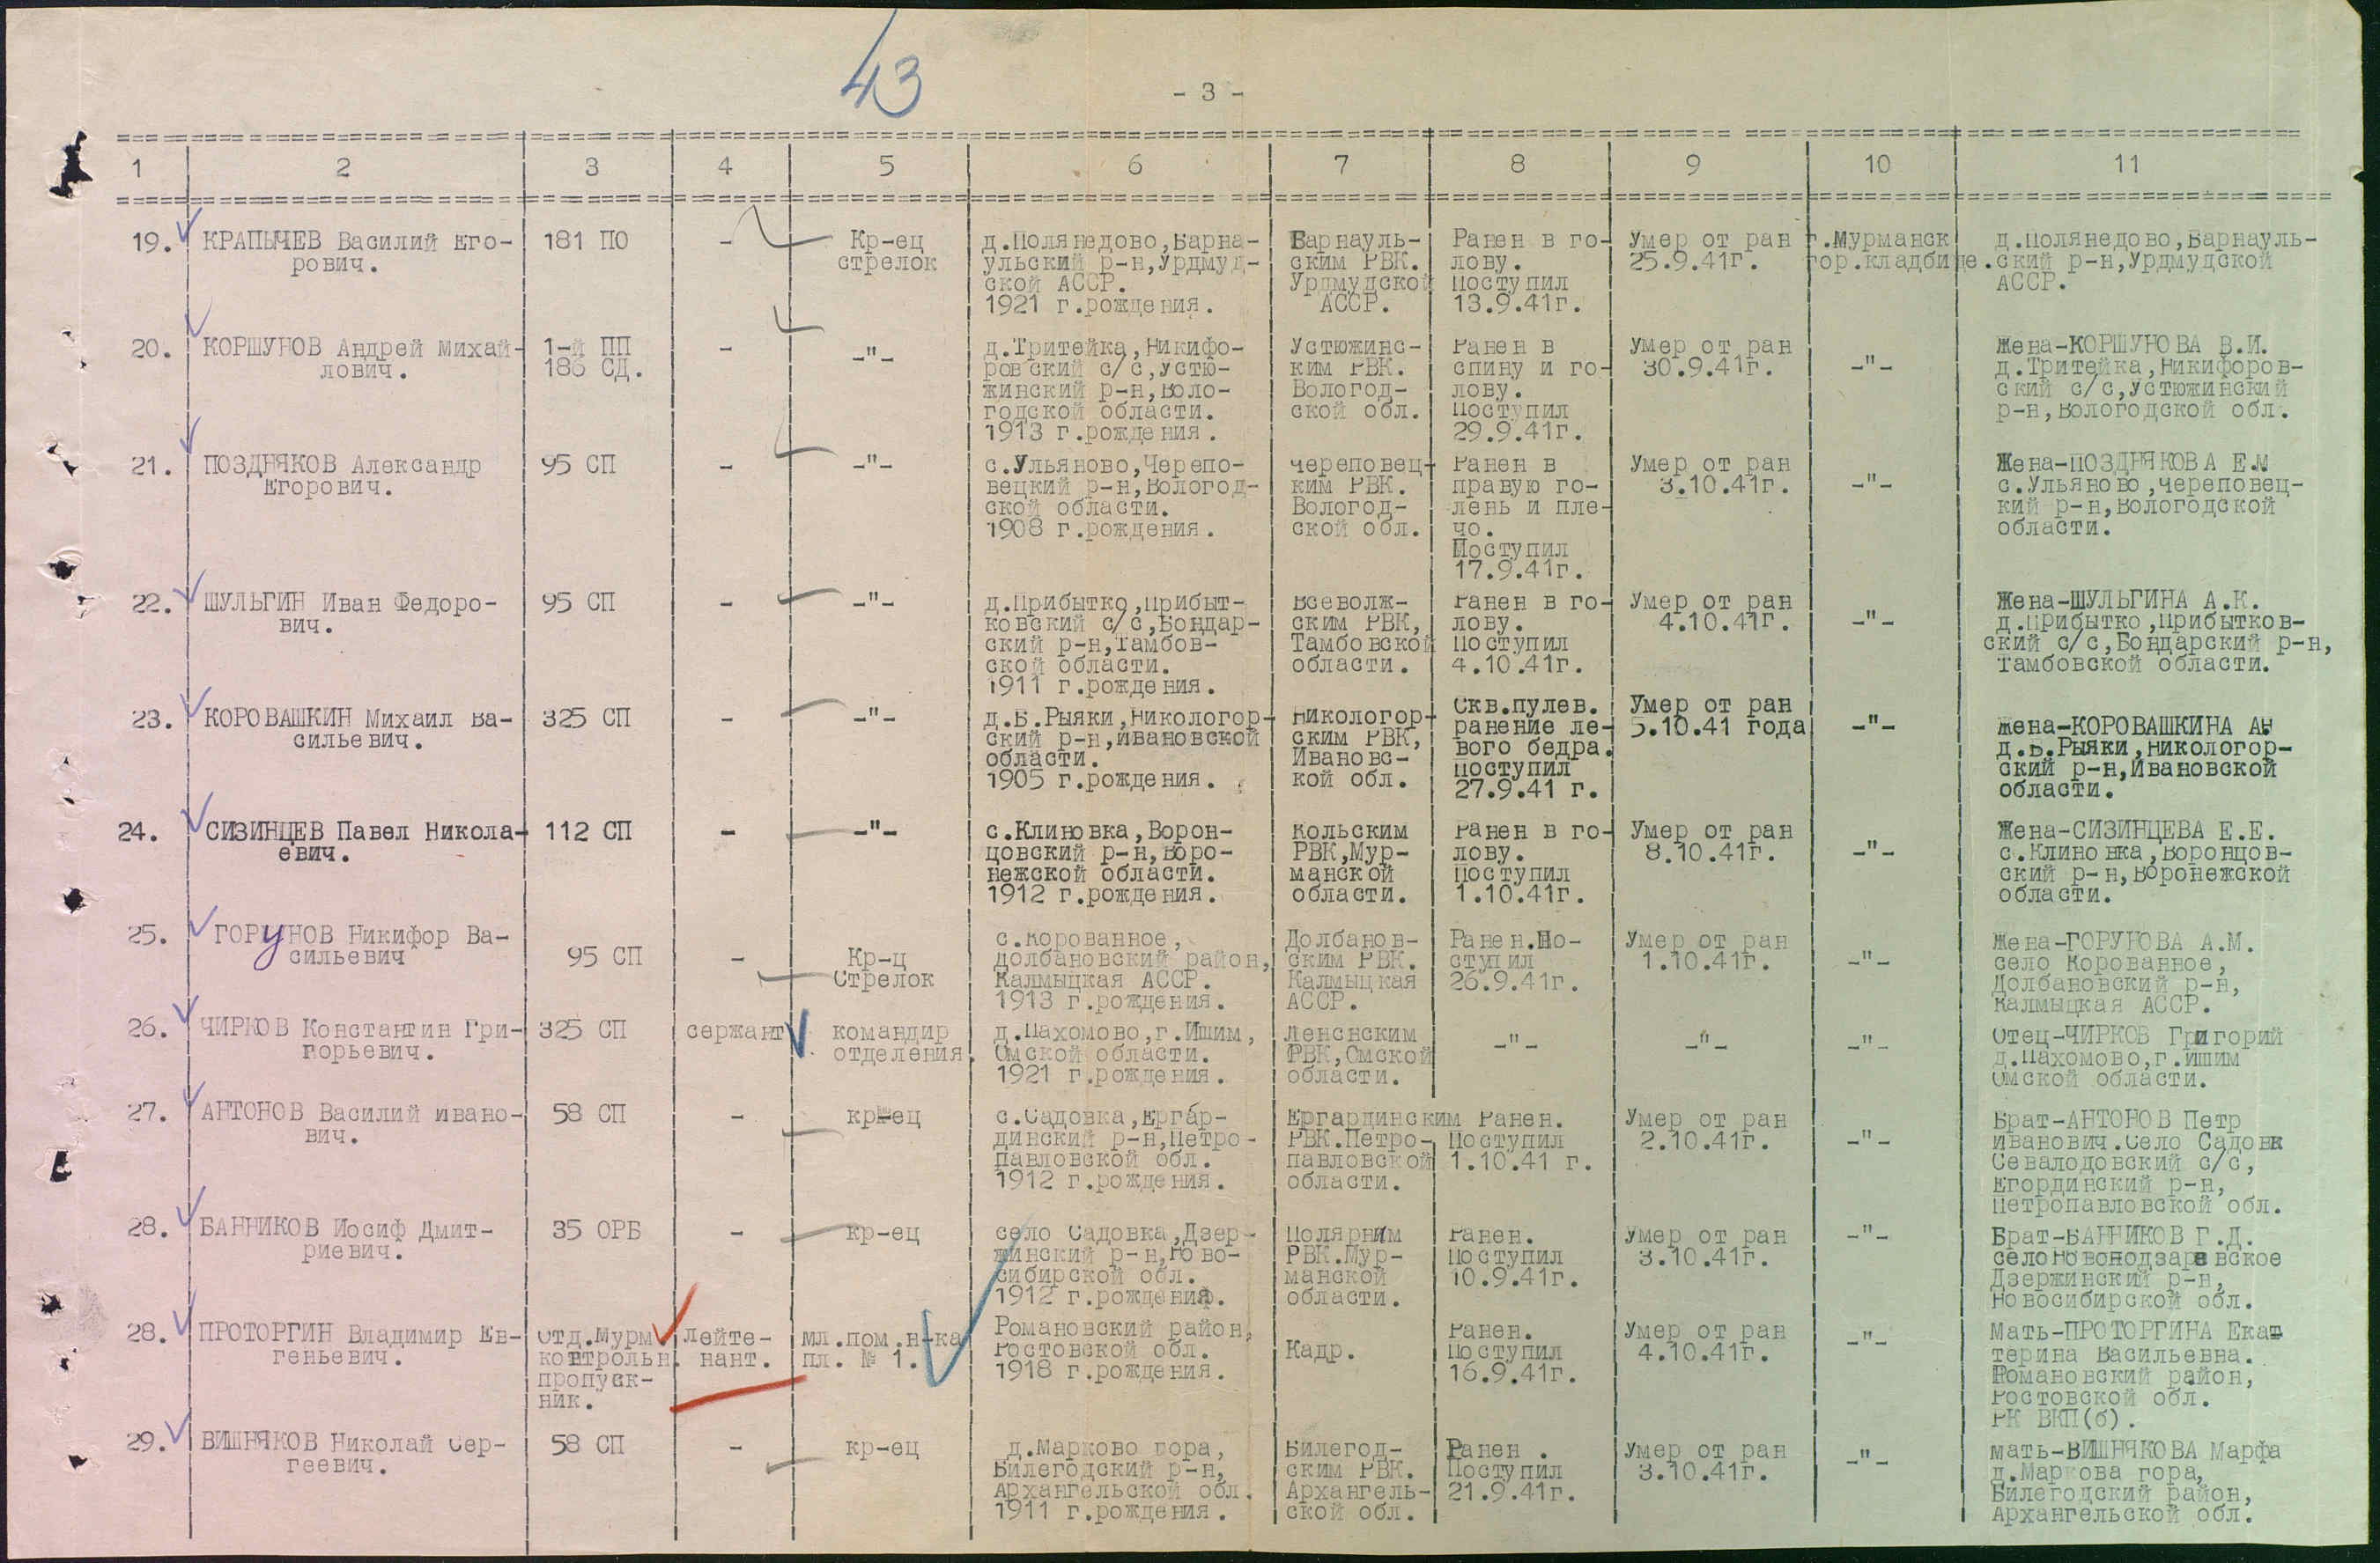 43
- 3 -
1 2 3 4 5 6 7 8 9 10 11
19. КРАПЫЧЕВ Василий Его-
рович.
181 ПО
-
Кр-ец
стрелок
д.Полянедово,Варна-
ульский р-н,Урдмуд-
ской АССР.
1921 г.рождения.
Варнауль-
ским РВК.
Урдмудской
АССР.
Ранен в го-
лову.
Поступил
13.9.41г.
Умер от ран
25.9.41г.
г.Мурманск
гор.кладбище.
д.Полянедово,Варнауль-
ский р-н,Урдмудской
АССР.
20. КОРШУНОВ Андрей Михай-
лович.
1-й ПП
186 СД.
-
-"-
д.Тритейка,Никифо-
ровский с/с,Устю-
жинский р-н,Воло-
годской области.
1913 г.рождения.
Устюжинс-
ким РВК.
Вологод-
ской обл.
Ранен в
спину и го-
лову.
Поступил
29.9.41г.
Умер от ран
30.9.41г.
-"-
Жена-КОРШУНОВА В.И.
д.Тритейка,Никифоров-
ский с/с,Устюжинский
р-н,Вологодской обл.
21. ПОЗДНЯКОВ Александр
Егорович.
95 СП
-
-"-
с.Ульяново,Черепо-
вецкий р-н,Вологод-
ской области.
1908 г.рождения.
Череповец-
ким РВК.
Вологод-
ской обл.
Ранен в
правую го-
лень и пле-
чо.
Поступил
17.9.41г.
Умер от ран
3.10.41г.
-"-
Жена-ПОЗДНЯКОВА Е.М
с.Ульяново,Череповец-
кий р-н,Вологодской
области.
22. ШУЛЬГИН Иван Федоро-
вич.
95 СП
-
-"-
д.Прибытко,Прибыт-
ковский с/с,Бондар-
ский р-н,Тамбов-
ской области.
1911 г.рождения.
Всеволж-
ским РВК,
Тамбовской
области.
Ранен в го-
лову.
Поступил
4.10.41г.
Умер от ран
4.10.41г.
-"-
Жена-ШУЛЬГИНА А.К.
д.Прибытко,Прибытков-
ский с/с,Бондарский р-н,
Тамбовской области.
23. КОРОВАШКИН Михаил Ва-
сильевич.
325 СП
-
-"-
д.Б.Рыяки,Никологор-
ский р-н,Ивановской
области.
1905 г.рождения.
Никологор-
ским РВК,
Ивановс-
кой обл.
Скв.пулев.
ранение ле-
вого бедра.
Поступил
27.9.41 г.
Умер от ран
5.10.41 года
-"-
Жена-КОРОВАШКИНА АН
д.Б.Рыяки,Никологор-
ский р-н,Ивановской
области.
24. СИЗИНЦЕВ Павел Никола-
евич.
112 СП
-
-"-
с.Клиновка,Ворон-
цовский р-н,Воро-
нежской области.
1912 г.рождения.
Кольским
РВК,Мур-
манской
области.
Ранен в го-
лову.
Поступил
1.10.41г.
Умер от ран
8.10.41г.
-"-
Жена-СИЗИНЦЕВА Е.Е.
с.Клиновка,Воронцов-
ский р-н,Воронежской
области.
25. ГОРУНОВ Никифор Ва-
сильевич
95 СП
-
Кр-ц
Стрелок
с.Корованное,
Долбановский район,
Калмыцкая АССР.
1913 г.рождения.
Долбанов-
ским РВК.
Калмыцкая
АССР.
Ранен.По-
ступил
26.9.41г.
Умер от ран
1.10.41г.
-"-
Жена-ГОРУНОВА А.М.
село Корованное,
Долбановский р-н,
Калмыцкая АССР.
26. ЧИРКОВ Константин Гри-
горьевич.
325 СП
сержант
командир
отделения.
д.Пахомово,г.Ишим,
Омской области.
1921 г.рождения.
Ленснским
РВК,Омской
области.
-"-
-"-
-"-
Отец-ЧИРКОВ Григорий
д.Пахомово,г.Ишим
Омской области.
27. АНТОНОВ Василий Ивано-
вич.
58 СП
-
кр-ец
с.Садовка,Ергар-
динский р-н,Петро-
павловской обл.
1912 г.рождения.
Ергардинским
РВК.Петро-
павловской
области.
Ранен.
Поступил
1.10.41 г.
Умер от ран
2.10.41г.
-"-
Брат-АНТОНОВ Петр
Иванович.Село Садовк
Севалодовский с/с,
Егординский р-н,
Петропавловской обл.
28. БАННИКОВ Иосиф Дмит-
риевич.
35 ОРБ
-
кр-ец
село Садовка,Дзер-
жинский р-н,Ново-
сибирской обл.
1912 г.рождения.
Полярним
РВК.Мур-
манской
области.
Ранен.
Поступил
10.9.41г.
Умер от ран
3.10.41г.
-"-
Брат-БАННИКОВ Г.Д.
село Новонодзаревское
Дзержинский р-н,
Новосибирской обл.
28. ПРОТОРГИН Владимир Ев-
геньевич.
Отд.Мурм
контрольн.
пропуск-
ник.
Лейте-
нант.
мл.пом.н-ка
пл. № 1.
Романовский район,
Ростовской обл.
1918 г.рождения.
Кадр.
Ранен.
Поступил
16.9.41г.
Умер от ран
4.10.41г.
-"-
Мать-ПРОТОРГИНА Екат
терина Васильевна.
Романовский район,
Ростовской обл.
РК ВКП(б).
29. ВИШНЯКОВ Николай Сер-
геевич.
58 СП
-
кр-ец
д.Марково гора,
Вилегодский р-н,
Архангельской обл.
1911 г.рождения.
Вилегод-
ским РВК.
Архангель-
ской обл.
Ранен .
Поступил
21.9.41г.
Умер от ран
3.10.41г.
-"-
мать-ВИШНЯКОВА Марфа
д.Маркова гора,
Вилегодский район,
Архангельской обл.